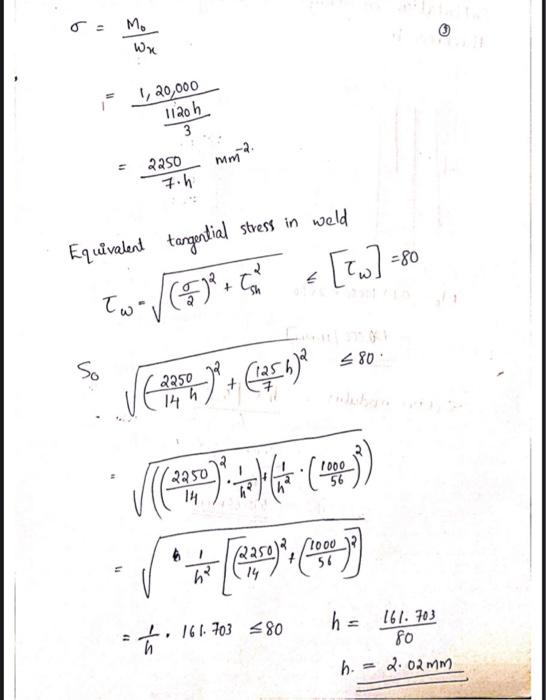 ③
σ = M₀ / Wx
= 1,20,000 / (1120h / 3)
= 2250 / 7·h mm⁻².
Equivalent tangential stress in weld
τw = √((σ/2)² + τsh²) ≤ [τw] = 80
So √((2250 / 14 h)² + (125 h / 7)²) ≤ 80.
= √(((2250/14)² · 1/h²) + (1/h² · (1000/56)²))
= √(1/h² [(2250/14)² + (1000/56)²])
= 1/h · 161.703 ≤ 80 h = 161.703 / 80
h. = 2.02mm